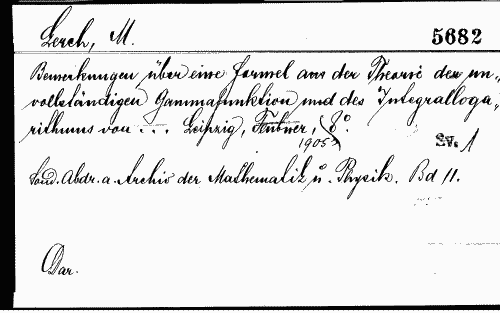 Lerch, M.
5682
Bemerkungen über eine Formel aus der Theorie der un-
vollständigen Gammafunktion und des Integralloga-
rithmus von ... Leipzig, Teubner, 8°.
1905
Sv. 1
Sond. Abdr. a. Archiv der Mathematik u. Physik. Bd 11.
Dar.